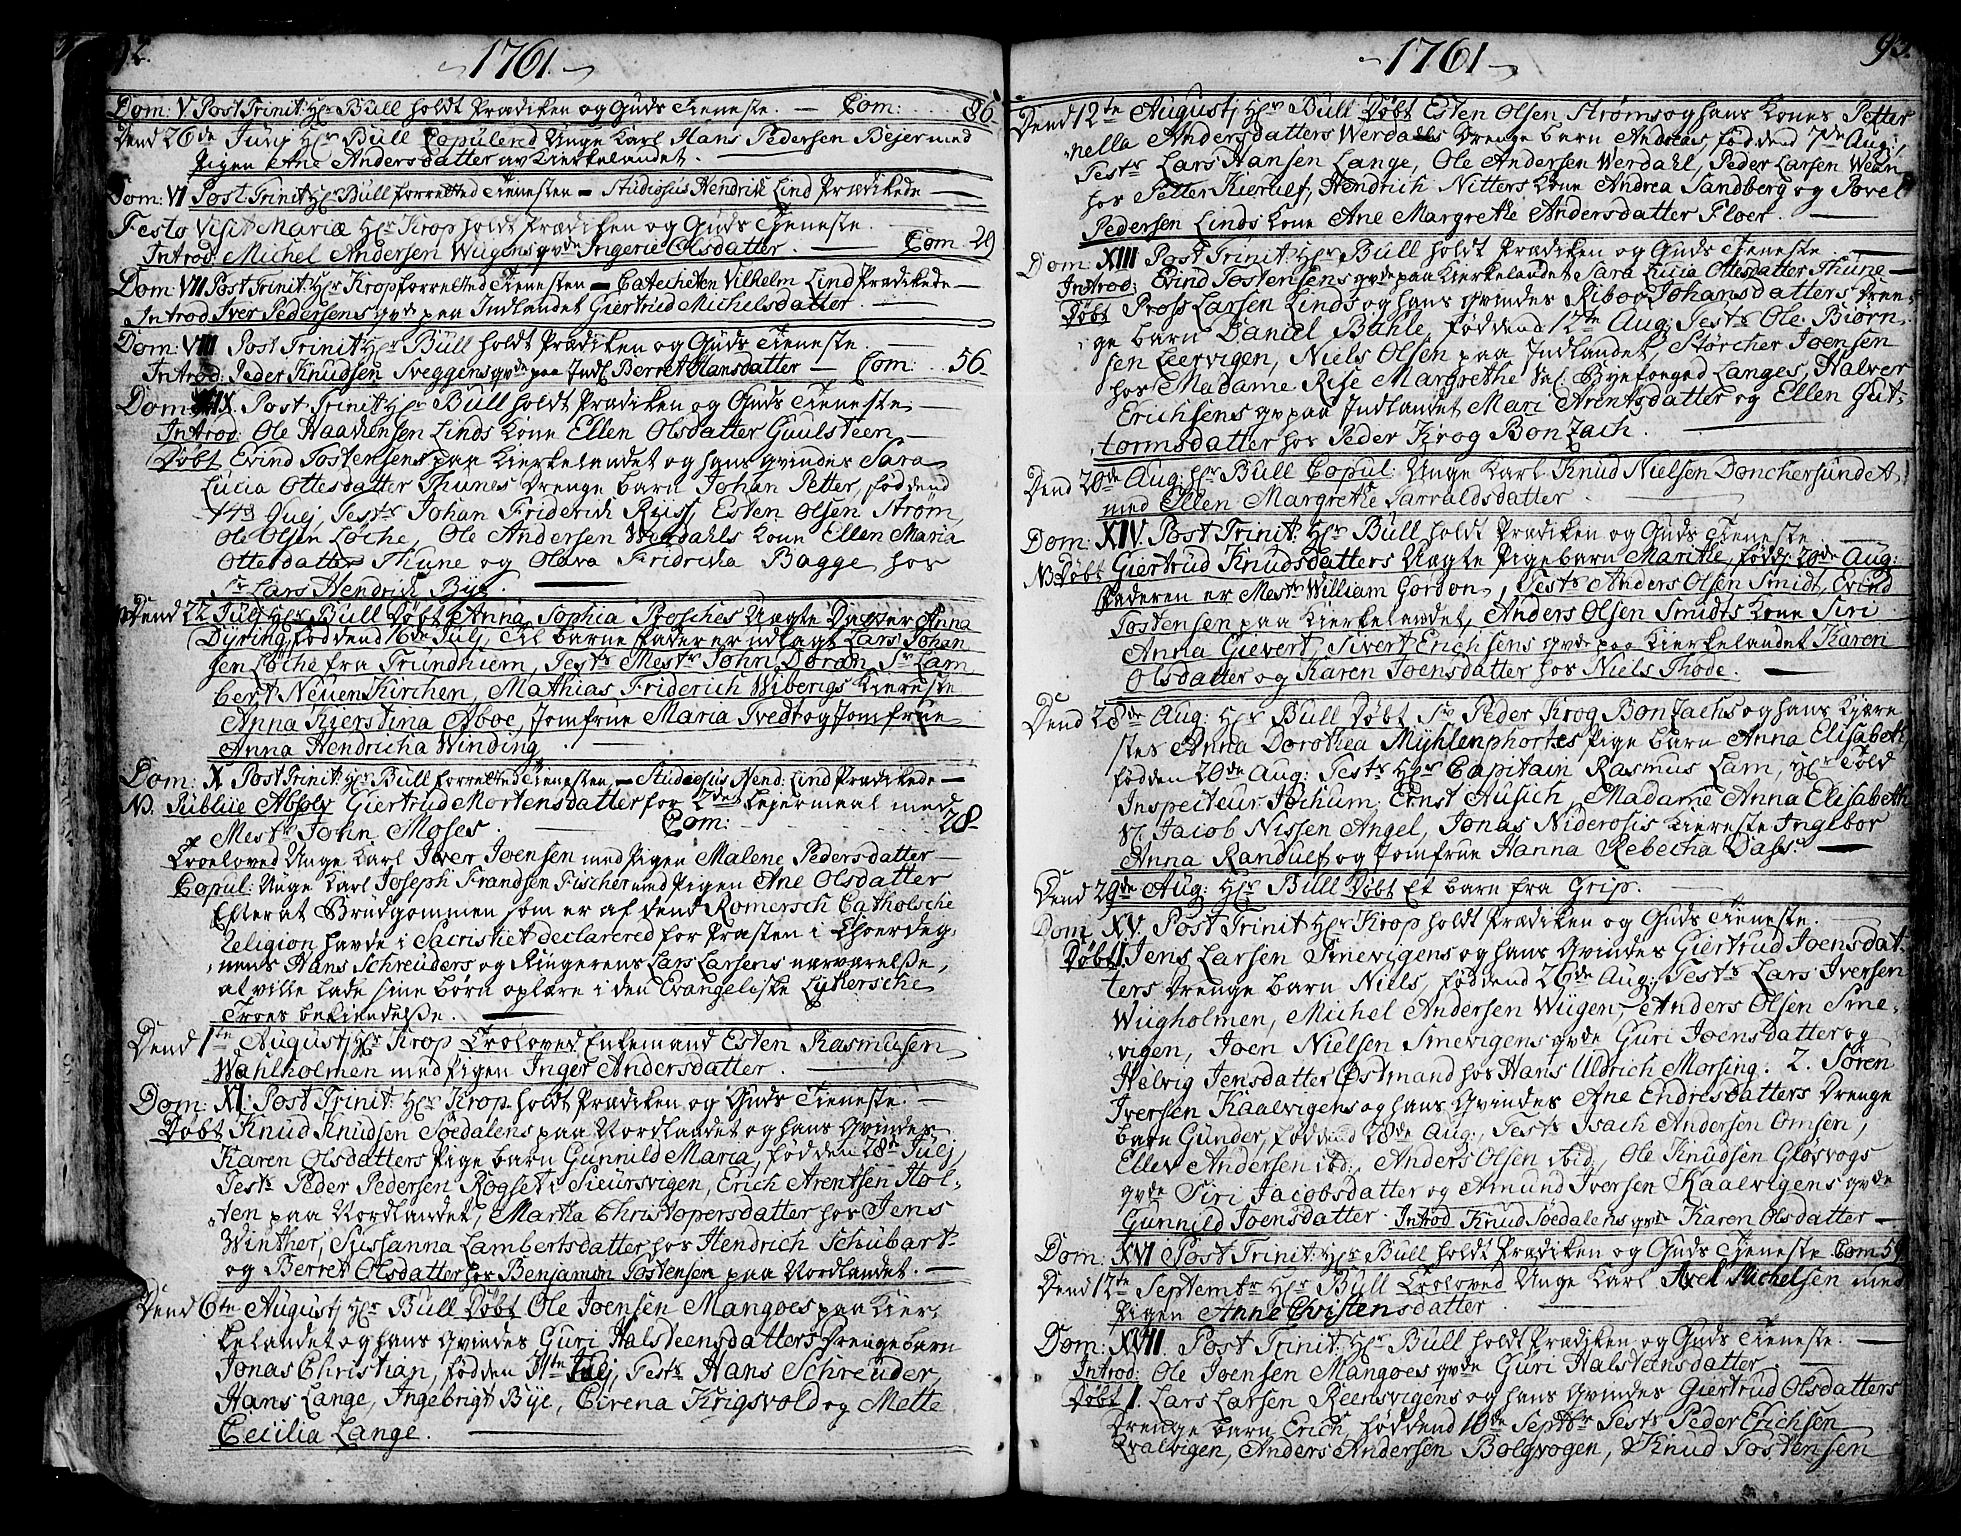 92.
1761.
Dom: V. Post Trinit: Hr Bull holdt Prædiken og Guds Tieneste. — Com: ... 86.
Dend 26de Junij Hr Bull Copulerd Unge Karl Hans Pedersen Bejer med
Pigen Ane Andersdatter av Kierkelandet.
Dom: VI Post Trinit: Hr Bull forretted Tienesten — Studiosus Hendrik Lind Prædikede —
Festo Visit: Mariæ Hr Krop holdt Prædiken og Guds Tieneste.
Introd: Michel Andersen Wugens qvde Ingerie Olsdatter. — Com. 29
Dom: VII Post Trinit: Hr Krop forretted Tienesten — Catecheten Vilhelm Lind Prædikede —
Introd Iver Pedersens qvde paa Indlandet Giertrud Michelsdatter.
Dom: VIII Post Trinit: Hr Bull holdt Prædiken og Guds Tieneste. —
Introd: Peder Knudsen Sveggens qvde paa Indl Berret Hansdatter — Com: .. 56.
Dom: IX. Post Trinit: Hr Bull holdt Prædiken og Guds Tieneste. —
Introd: Ole Haachensen Linds Kone Ellen Olsdatter Guulsteen. —
Døbt Evind Jostensens paa Kierkelandet og hans Qvindes Sara
Lucia Ottesdatter Thunes Drenge barn Johan Petter, fød dend
14de Julj, Testr Johan Friderich Russ, Esten Olsen Strøm,
Ole Olsen Løche, Ole Andersen Werdahls Kone Ellen Maria
Ottesdatter Thune og Olava Fridricha Bagge hos
Sr Lars Hendrich Bye.
Dend 22 Julj Hr Bull Døbt Anna Sophia Brosches Uægte Datter Anna
Dyring, fød dend 16de Julj, til barne fader er udlagt Lars Johan
sen Løche fra Trundhiem, Testr Mestr John Doran, Sr Lam
bert Neuen Kirchen, Mathias Friderich Wibergs Kiereste
Anna Kierstina Aboe, Jomfrue Maria Tvedt og Jomfrue
Anna Hendricha Winding.
Dom: X Post Trinit: Hr Bull forretted Tienesten, — Studiosus Hend: Lind Prædikede —
N. Publice Absolv Giertrud Mortensdatter for 2den Lejermaal med
Mestr John Moses. Com: 28.
Troeloved Unge Karl Iver Joensen med Pigen Malene Pedersdatter —
Copul: Unge Karl Joseph Frandsen Fischer med Pigen Ane Olsdatter
Efter at Brudgommen som er af dend Romersch Catholsche
Religion havde i Sacristiet declarered for Præsten i Choerdeg-
nens Hans Schreuders og Ringerens Lars Larsens nærværelse,
at ville lade sine børn oplære i den Evangeliske Luthersche
Troes bekiendelse.
Dend 1te Augustj Hr Krop Troloved Enkemand Esten Rasmusen
Wahlholmen med Pigen Inger Andersdatter.
Dom: XI: Post Trinit: Hr Krop holdt Prædiken og Guds Tieneste. —
Døbt Knud Knudsen Soedalens paa Nordlandet og hans Qvindes
Karen Olsdatters Pige barn Gunnild Maria, fød den 28de Julj,
Testr Peder Pedersen Rogset i Sieursvigen, Erich Arentsen Hol-
ten paa Nordlandet, Martha Christopersdatter hos Jens
Winther, Sussanna Lambertsdatter hos Hendrich Schubart
og Berret Olsdatter hos Benjamin Jostensen paa Nordlandet. —
Dend 6te Augustj Hr Bull Døbt Ole Joensen Mangoes paa Kier-
kelandet og hans Qvindes Guri Halsteensdatters Drenge barn
Jonas Christian, fød den 31te Julj, Testr Hans Schreuder,
Hans Lange, Ingebrigt Bye, Cirena Krigsvold og Mette
Cecilia Lange.
93.
1761
Dend 12te Augustj Hr Bull Døbt Esten Olsen Strøms og hans Kones Petter
nella Andersdatters Werdahls Drenge barn Andreas, fød dend 7de Aug:
Testr Lars Hansen Lange, Ole Andersen Werdahl, Peder Larsen Wean
hos Petter Kierulf, Hendrich Nitters Kone Andrea Sandberg og Povel
Pedersen Linds Kone Ane Margrethe Andersdatter Floer.
Dom: XIII Post Trinit: Hr Bull holdt Prædiken og Guds Tieneste
Introd: Evind Jostensens qvde paa Kierkelandet Sara Lucia Ottesdatter Thune —
Døbt Pross Larsen Linds og hans Qvindes Riboe Johansdatters Dren-
ge barn Daniel Buhle, fød dend 12te Aug: Testr Ole Biørn-
sen Leervigen, Niels Olsen paa Indlandet, Størcher Joensen
hos Madame Rise Margrethe Sal. Byefoged Langes, Halver
Erichsens qv paa Indlandet Mari Arentsdatter og Ellen Gut-
tormsdatter hos Peder Krog Bonzach.
Dend 20de Aug: Hr Bull Copul: Unge Karl Knud Nielsen Donchersund A
med Ellen Margrethe Jarraldsdatter.
Dom: XIV. Post Trinit: Hr Bull holdt Prædiken og Guds Tieneste.
N. Døbt Giertrud Knudsdatters Uægte Pigebarn Marithe, fød 20de Aug:
faderen er Mestr William Gordon, Testr Anders Olsen Smidt, Evind
Jostensen paa Kierkelandet, Anders Olsen Smidts Kone Siri
Anna Gievert, Sivert Erichsens qvde paa Kierkelandet Karen
Olsdatter og Karen Joensdatter hos Niels Thode.
Dend 28de Aug: Hr Bull Døbt Sr Peder Krog Bonzachs og hans Kjære
stes Anna Dorothea Mühlenphortes Pige barn Anna Elisabeth
fød den 20de Aug: Testr Hr Capitain Rasmus Lam, Hr Told
Inspecteur Jochum Ernst Ausich, Madame Anna Elisabeth
Sl. Jacob Nissen Angel, Jonas Niderosis Kiereste Ingebor
Anna Randulf og Jomfrue Hanna Rebecha Dass.
Dend 29de Aug: Hr Bull Døbt Et barn fra Grip.
Dom: XV. Post Trinit: Hr Krop holdt Prædiken og Guds Tieneste.
Døbt 1. Jens Larsen Smevigens og hans Qvindes Giertrud Joensdat-
ters Drenge barn Niels, fød dend 26de Aug: Testr Lars Iversen
Wugholmen, Michel Andersen Wugen, Anders Olsen Sme-
vigen, Joen Nielsen Smevigens qvde Guri Joensdatter og
Helvig Jensdatter Østmand hos Hans Uldrich Morsing. 2. Søren
Iversen Kaalvigens og hans Qvindes Ane Endresdatters Drenge
barn Gunder, fød dend 28de Aug:, Testr Isach Andersen Omsen,
Ellev Andersen ibd:, Anders Olsen ibid, Ole Knudsen Gløsvogs
qvde Siri Jacobsdatter og Amund Iversen Kaalvigens qvde
Gunnild Joensdatter. Introd Knud Soedalens qvde Karen Olsdatter —
Dom: XVI Post Trinit: Hr Bull holdt Prædiken og Guds Tieneste. Com 59
Dend 12te Septembr Hr Bull Troloved Unge Karl Axel Michelsen med
Pigen Anne Christensdatter.
Dom: XVII. Post Trinit: Hr Bull holdt Prædiken og Guds Tieneste. —
Introd: Ole Joensen Mangoes qvde Guri Halsteinsdatter
Døbt 1. Lars Larsen Reensvigens og hans Qvindes Giertrud Olsdatters
Drenge barn Erich, fød dend 10de Septbr Testr Peder Erichsen
Qvalvigen, Anders Andersen Bolgvogen, Knud Jostensen